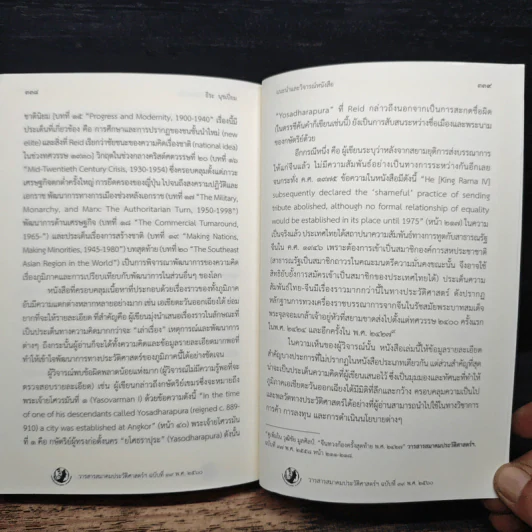 ๓๓๘ ธีระ นุชเปี่ยม
ชาตินิยม (บทที่ ๑๕ “Progress and Modernity, 1900-1940” เรื่องนี้มี
ประเด็นที่เกี่ยวข้อง คือ การศึกษาและการปรากฏของชนชั้นนำใหม่ (new
elite) และสิ่งที่ Reid เรียกว่าชัยชนะของความคิดเรื่องชาติ (national idea)
ในช่วงทศวรรษ ๑๙๓๐) วิกฤตในช่วงกลางคริสต์ศตวรรษที่ ๒๐ (บทที่ ๑๖
“Mid-Twentieth Century Crisis, 1930-1954) ซึ่งครอบคลุมตั้งแต่ภาวะ
เศรษฐกิจตกต่ำครั้งใหญ่ การยึดครองของญี่ปุ่น ไปจนถึงสงครามปฏิวัติและ
เอกราช พัฒนาการทางการเมืองช่วงหลังเอกราช (บทที่ ๑๗ “The Military,
Monarchy, and Marx: The Authoritarian Turn, 1950-1998”)
พัฒนาการด้านเศรษฐกิจ (บทที่ ๑๘ “The Commercial Turnaround,
1965-”) และประเด็นเรื่องการสร้างชาติ (บทที่ ๑๙ “Making Nations,
Making Minorities, 1945-1980”) บทสุดท้าย (บทที่ ๒๐ “The Southeast
Asian Region in the World”) เป็นการพิจารณาพัฒนาการของความคิด
เรื่องภูมิภาคและการเปรียบเทียบกับพัฒนาการในส่วนอื่นๆ ของโลก
หนังสือที่ครอบคลุมเนื้อหาที่ประกอบด้วยเรื่องราวของทั้งภูมิภาค
อันมีความแตกต่างหลากหลายอย่างมาก เช่น เอเชียตะวันออกเฉียงใต้ ย่อม
ยากที่จะให้รายละเอียด ที่สำคัญคือ ผู้เขียนมุ่งนำเสนอเรื่องราวในลักษณะที่
เป็นประเด็นทางความคิดมากกว่าจะ “เล่าเรื่อง” เหตุการณ์และพัฒนาการ
ต่างๆ ถึงกระนั้นผู้อ่านก็จะได้ทั้งความคิดและข้อมูลรายละเอียดมากพอที่
ทำให้เข้าใจพัฒนาการทางประวัติศาสตร์ของภูมิภาคนี้ได้อย่างชัดเจน
ผู้วิจารณ์พบข้อผิดพลาดน้อยแห่งมาก (ผู้วิจารณ์ไม่มีความรู้พอที่จะ
ตรวจสอบรายละเอียด) เช่น ผู้เขียนกล่าวถึงกษัตริย์เขมรซึ่งจะหมายถึง
พระเจ้ายโศวรมันที่ ๑ (Yasovarman I) ด้วยข้อความดังนี้ “In the time
of one of his descendants called Yosadharapura (reigned c. 889-
910) a city was established at Angkor” (หน้า ๔๐) พระเจ้ายโศวรมัน
ที่ ๑ คือ กษัตริย์ผู้ทรงก่อตั้งนคร “ยโศธราปุระ” (Yasodharapura) ดังนั้น
วารสารสมาคมประวัติศาสตร์ฯ ฉบับที่ ๓๙ พ.ศ. ๒๕๖๐
แนะนำและวิจารณ์หนังสือ ๓๓๙
“Yosadharapura” ที่ Reid กล่าวถึงนอกจากเป็นการสะกดชื่อผิด
ยังเป็นการสับสนระหว่างชื่อเมืองและพระนาม
ของกษัตริย์ด้วย
อีกกรณีหนึ่ง คือ ผู้เขียนระบุว่าหลังจากสยามยุติการส่งบรรณาการ
ให้แก่จีนแล้ว ไม่มีความสัมพันธ์อย่างเป็นทางการระหว่างกันอีกเลย
จนกระทั่ง ค.ศ. ๑๙๗๕ ข้อความในหนังสือมีดังนี้ “He [King Rama IV]
subsequently declared the ‘shameful’ practice of sending
tribute abolished, although no formal relationship of equality
would be established in its place until 1975” (หน้า ๒๓๗) ในความ
เป็นจริงแล้ว ประเทศไทยได้สถาปนาความสัมพันธ์ทางการทูตกับสาธารณรัฐ
จีนใน ค.ศ. ๑๙๔๖ เพราะต้องการเข้าเป็นสมาชิกองค์การสหประชาชาติ
(สาธารณรัฐจีนเป็นสมาชิกถาวรในคณะมนตรีความมั่นคงขณะนั้น จึงอาจใช้
สิทธิยับยั้งการสมัครเข้าเป็นสมาชิกของประเทศไทยได้) ประเด็นความ
สัมพันธ์ไทย-จีนมีเรื่องราวมากกว่านี้ในทางประวัติศาสตร์ ดังปรากฏ
หลักฐานการทวงเครื่องราชบรรณาการจากจีนในรัชสมัยพระบาทสมเด็จ
พระจุลจอมเกล้าเจ้าอยู่หัว
พ.ศ. ๒๔๒๑ และอีกครั้งใน พ.ศ. ๒๔๒๗
ในความเห็นของผู้วิจารณ์นั้น หนังสือเล่มนี้ให้ข้อมูลรายละเอียด
สำคัญบางประการที่ไม่ปรากฏในหนังสือประเภทเดียวกัน แต่ส่วนสำคัญที่สุด
น่าจะเป็นประเด็นความคิดที่ผู้เขียนเสนอไว้ ซึ่งเป็นมุมมองและทัศนะที่ทำให้
ภูมิภาคเอเชียตะวันออกเฉียงใต้มีมิติที่ลึกและกว้าง ครอบคลุมความเป็นไป
และพลวัตทางประวัติศาสตร์ได้อย่างที่ผู้อ่านสามารถนำไปใช้ในทางวิชาการ
การค้า การลงทุน และการดำเนินนโยบายต่างๆ
วารสารสมาคมประวัติศาสตร์ฯ
วารสารสมาคมประวัติศาสตร์ฯ ฉบับที่ ๓๙ พ.ศ. ๒๕๖๐